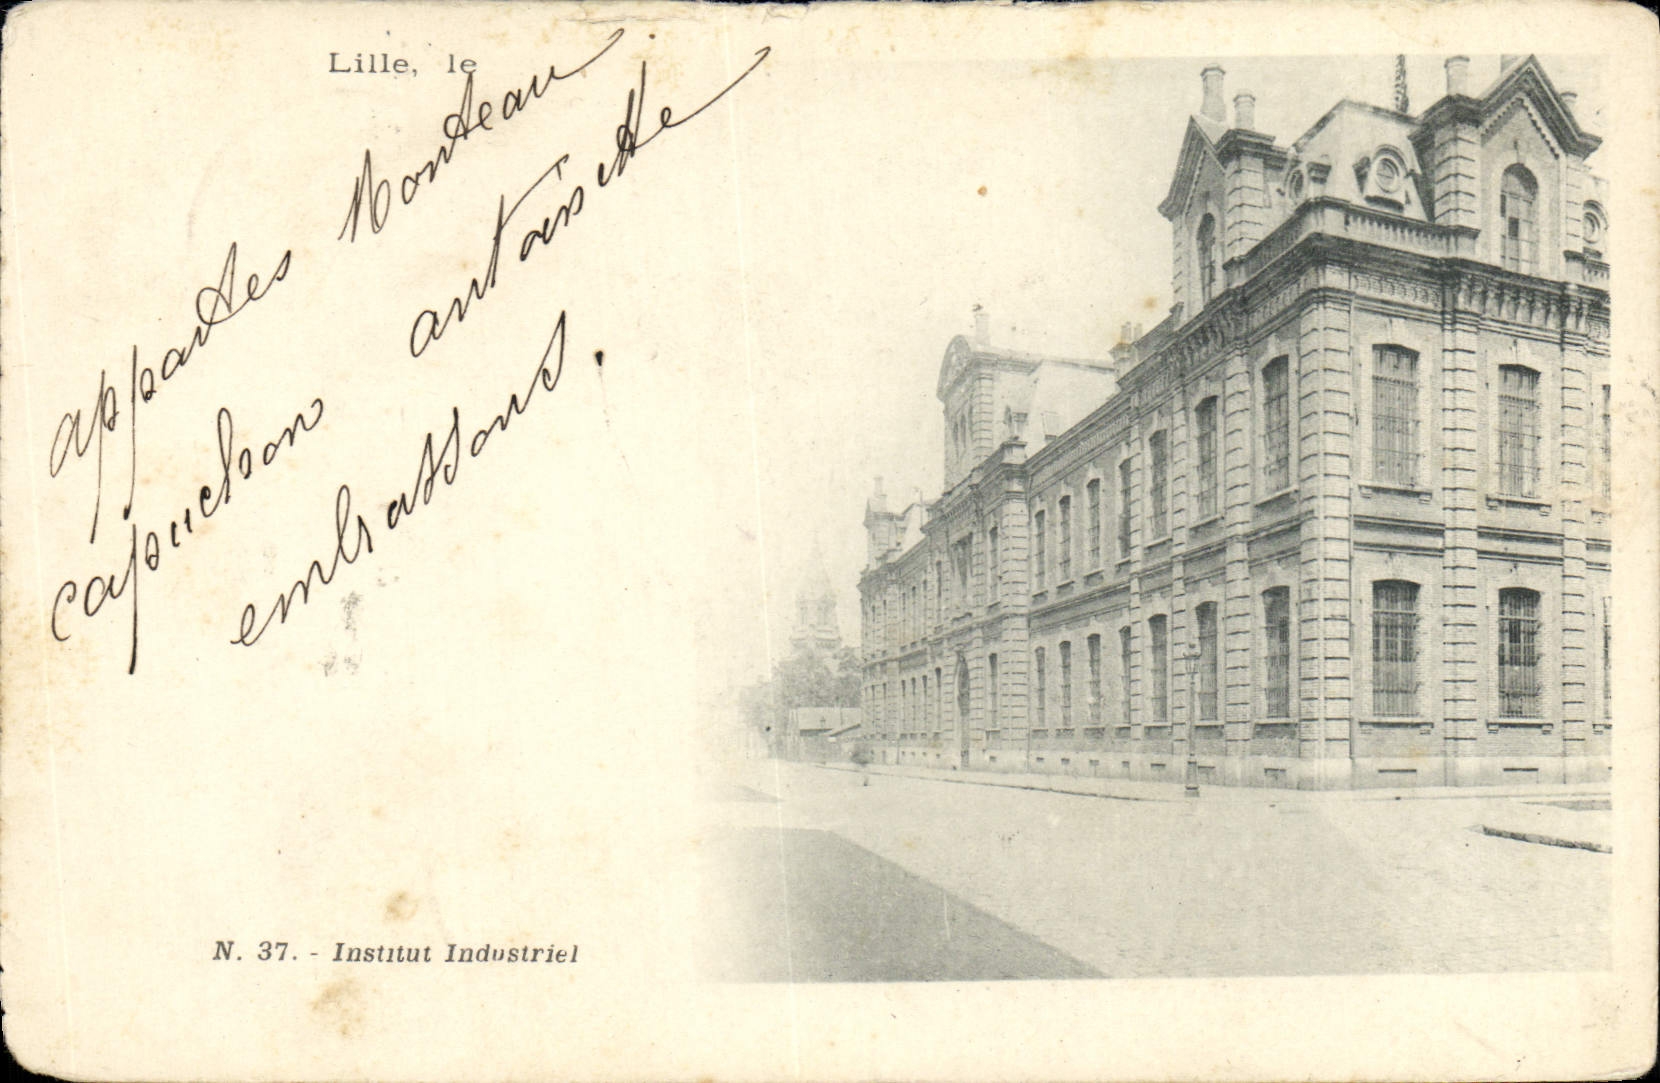 Lille, le
appartes Monteau
capuchon antoinette
embrassons.
N. 37. - Institut Industriel